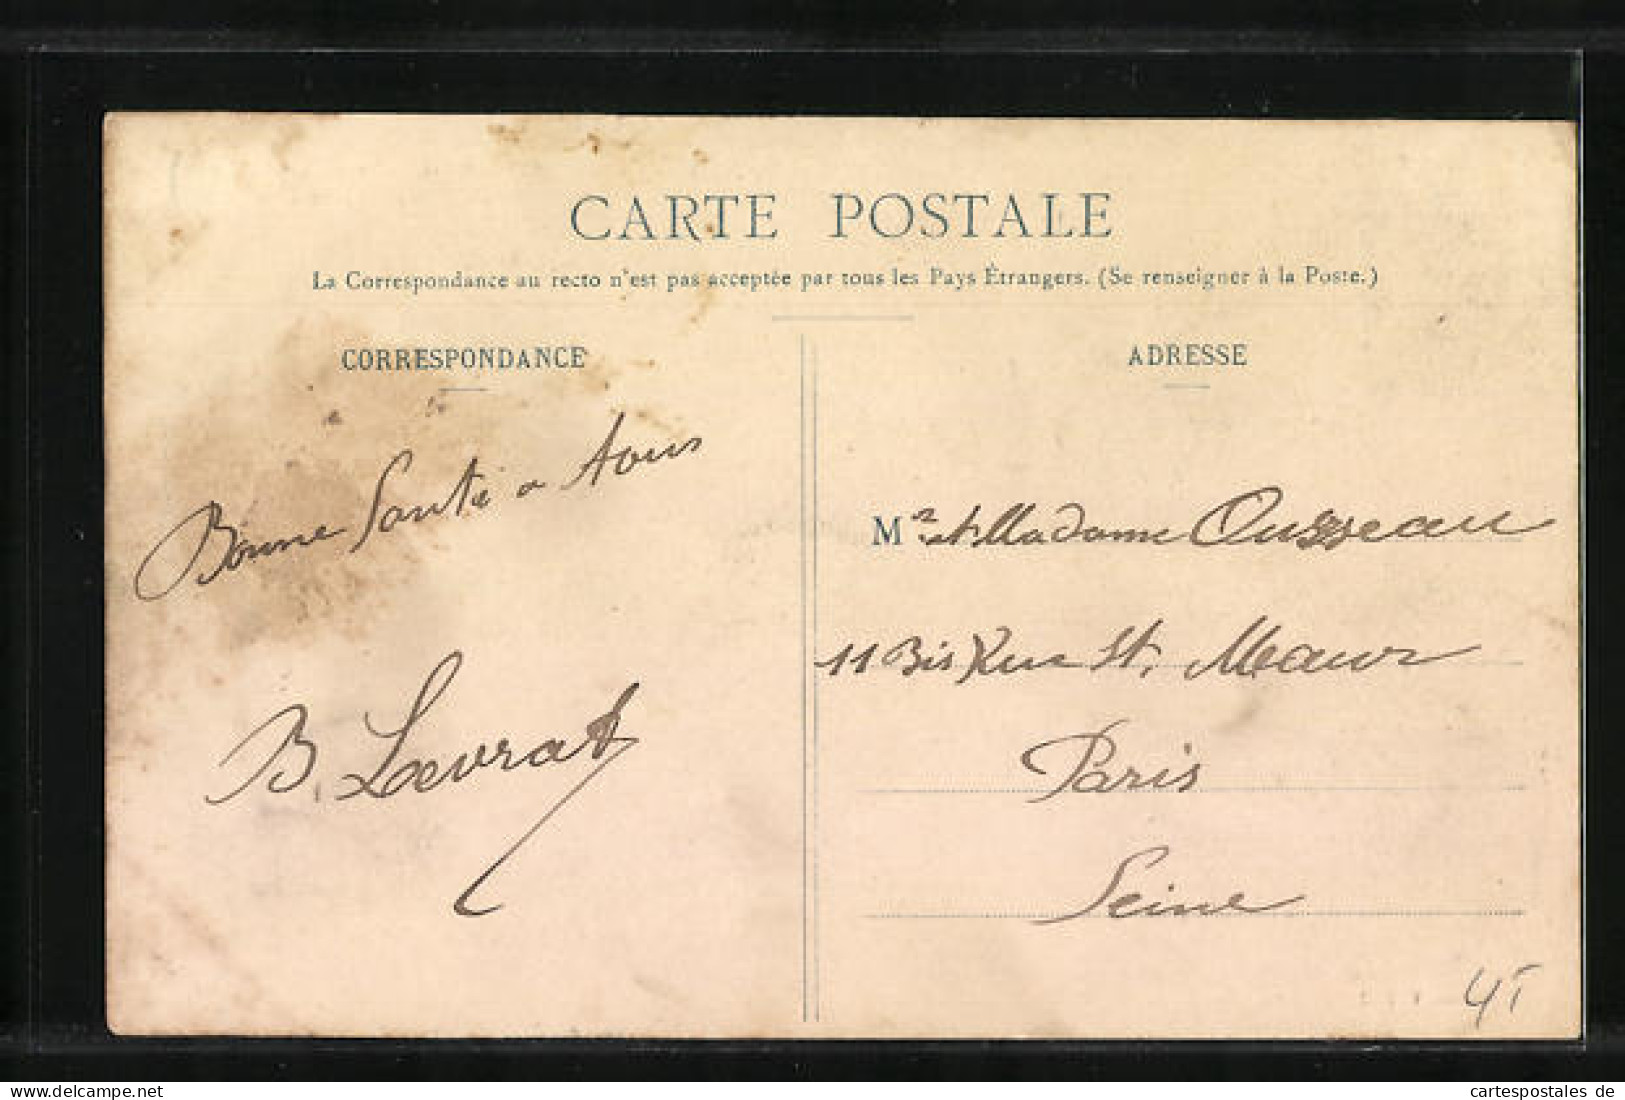 CARTE POSTALE
La Correspondance au recto n'est pas acceptée par tous les Pays Étrangers. (Se renseigner à la Poste.)
CORRESPONDANCE
Bonne Santé a tous
B. Levrat
ADRESSE
Mr et Madame Ousseau
11 Bis Rue St. Maur
Paris
Seine
45
delcampe.net
cartespostales de